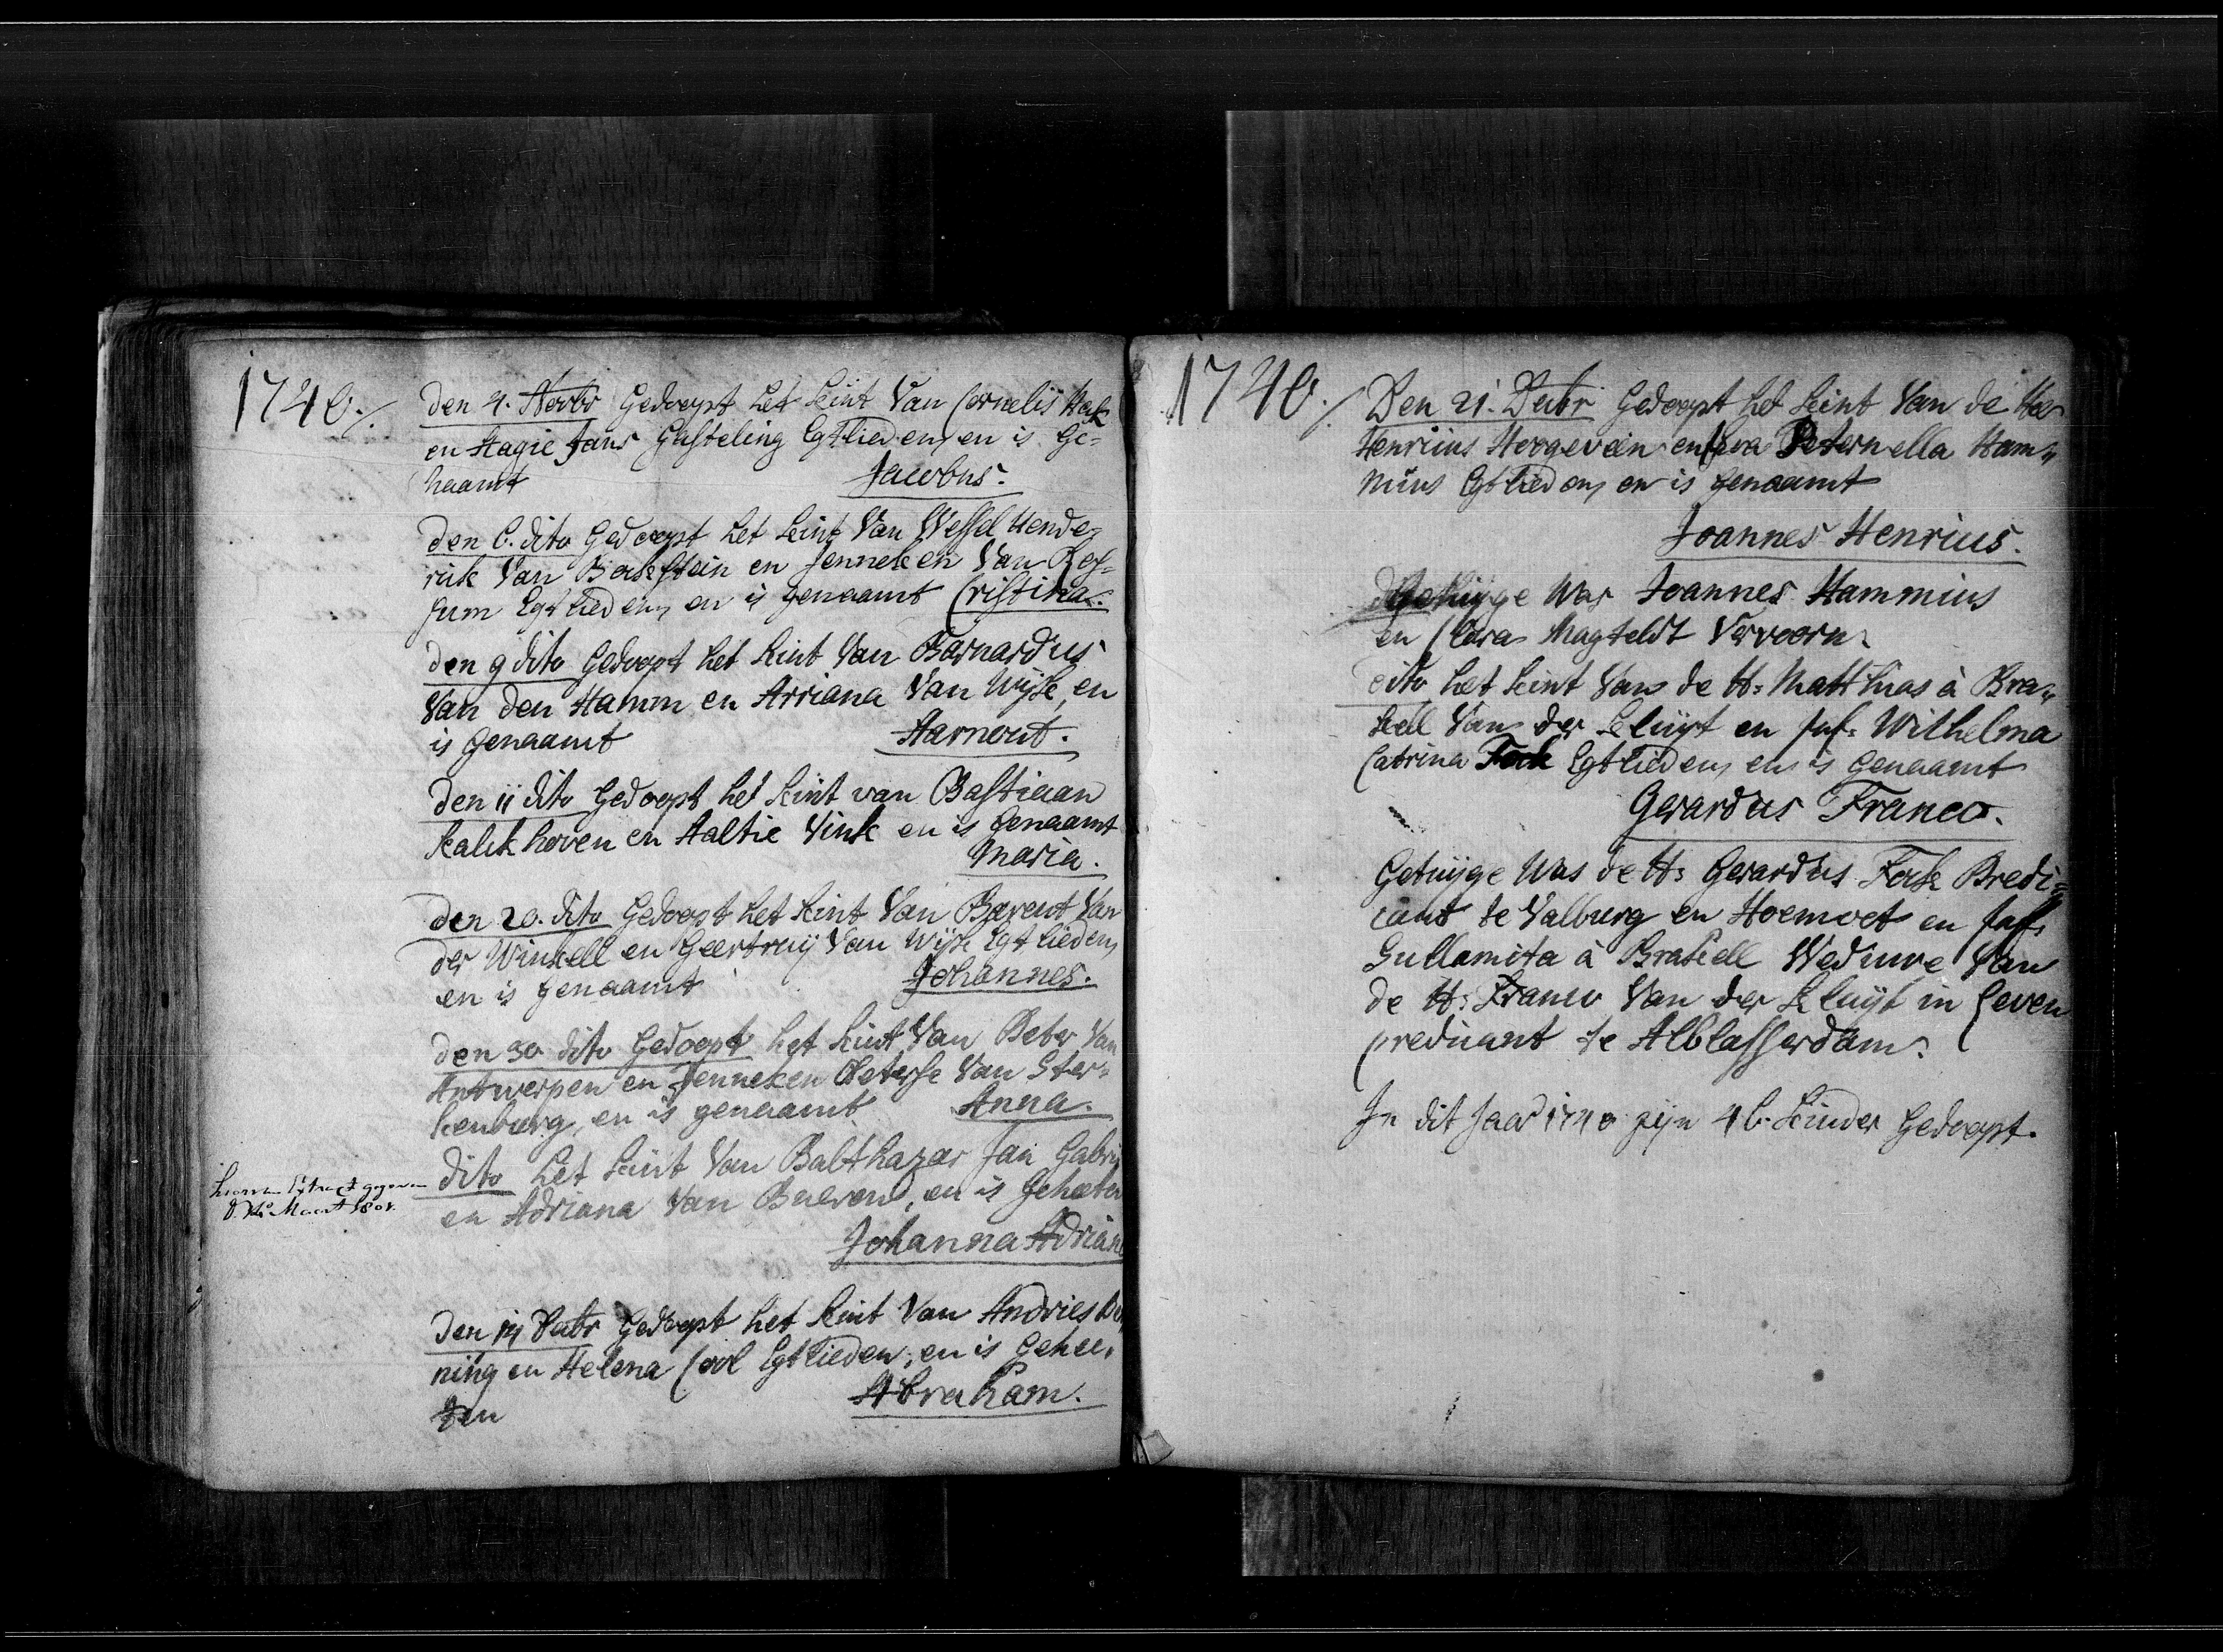 1740./.
den 4. Novbr Gedoopt het kint Van Cornelis Hak
en Aagie Jans Gasteling Egtlieden, en is Ge-
naamt Jacobus.
den 6. dito Gedoopt het kint Van Wessel Hende-
rik Van Bekstein en Jenneken Van Ros-
sum Egtlieden, en is genaamt Cristina.
den 9 dito Gedoopt het kint Van Barnardus
Van den Hamm en Arriana Van Wijk, en
is genaamt Aarnout.
den 11 dito Gedoopt het kint van Bastiaan
Kalkhoven en Aaltie Vink en is genaamt
Maria.
den 20. dito Gedoopt het kint Van Barent Van
der Winkell en Geertruij Van Wijk Egtlieden,
en is genaamt Johannes.
den 30 dito Gedoopt het kint Van Peter Van
Antwerpen en Jenneken Peterse Van Ster-
kenburg, en is genaamt Anna.
dito het kint Van Balthazar Jan Gabri
en Adriana Van Bueren, en is Geheeten
Johanna Adriana
Extract gegeven
Maart 1801.
den Decbr Gedoopt het kint Van Andries
ning en Helena Cool Egtlieden, en is Gehee-
ten Abraham.
1740./.
Den 21. Decbr Gedoopt het kint Van de Heer
Henricus Hoogeveen en Eva Peternella Ham-
mius Egtlieden, en is genaamt
Joannes Henricus.
Getuijge Was Joannes Hammius
en Clara Magteldt Vervoorn.
dito het kint Van de H: Matthias à Bra-
kell Van der Kluijt en Juf: Wilhelma
Catrina Fock Egtlieden, en is Genaamt
Gerardus Franco.
Getuijge Was de H: Gerardus Fock Predi-
cant te Valburg en Hoemoet en Juf:
Sullamita à Brakell Weduwe Van
de H: Franco Van der Kluijt in leven
predicant te Alblasserdam.
In dit Jaar 1740 zijn 46. Kinder Gedoopt.